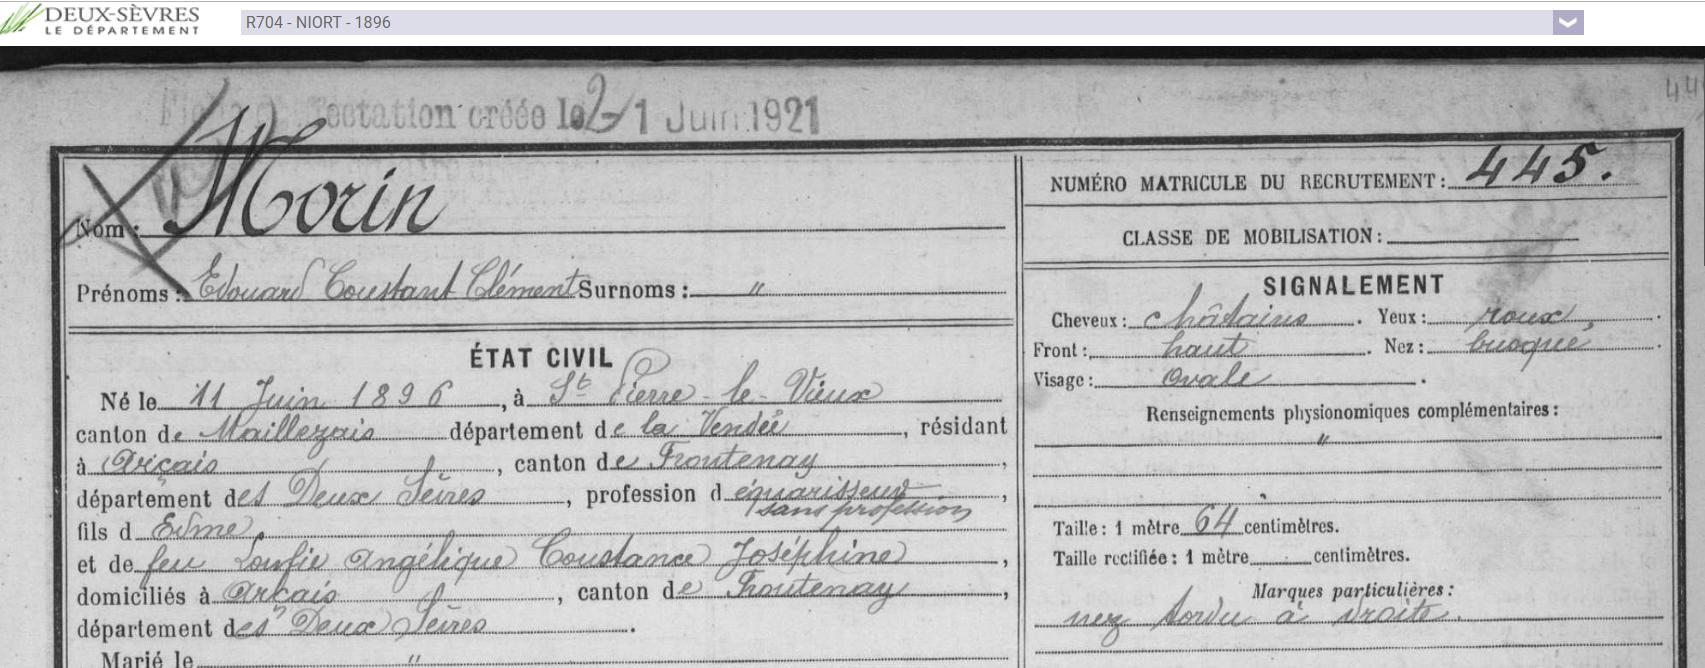 DEUX-SÈVRES
LE DÉPARTEMENT
R704 - NIORT - 1896
estation créée le 21 Juin 1921
44
Nom : Morin
Prénoms : Edouard Constant Clément Surnoms : "
ÉTAT CIVIL
Né le 11 Juin 1896, à St Pierre-le-Vieux
canton de Maillezais département de la Vendée, résidant
à Arçais, canton de Frontenay,
département des Deux Sèvres, profession d équarisseur,
sans profession
fils d Edme
et de feu Angélique Constance Joséphine,
domiciliés à Arçais, canton de Frontenay,
département des Deux Sèvres.
Marié le "
NUMÉRO MATRICULE DU RECRUTEMENT : 445.
CLASSE DE MOBILISATION :
SIGNALEMENT
Cheveux : châtains. Yeux : roux.
Front : haut. Nez : busqué.
Visage : ovale.
Renseignements physionomiques complémentaires :
"
Taille : 1 mètre 64 centimètres.
Taille rectifiée : 1 mètre centimètres.
Marques particulières :
nez tordu à droite.